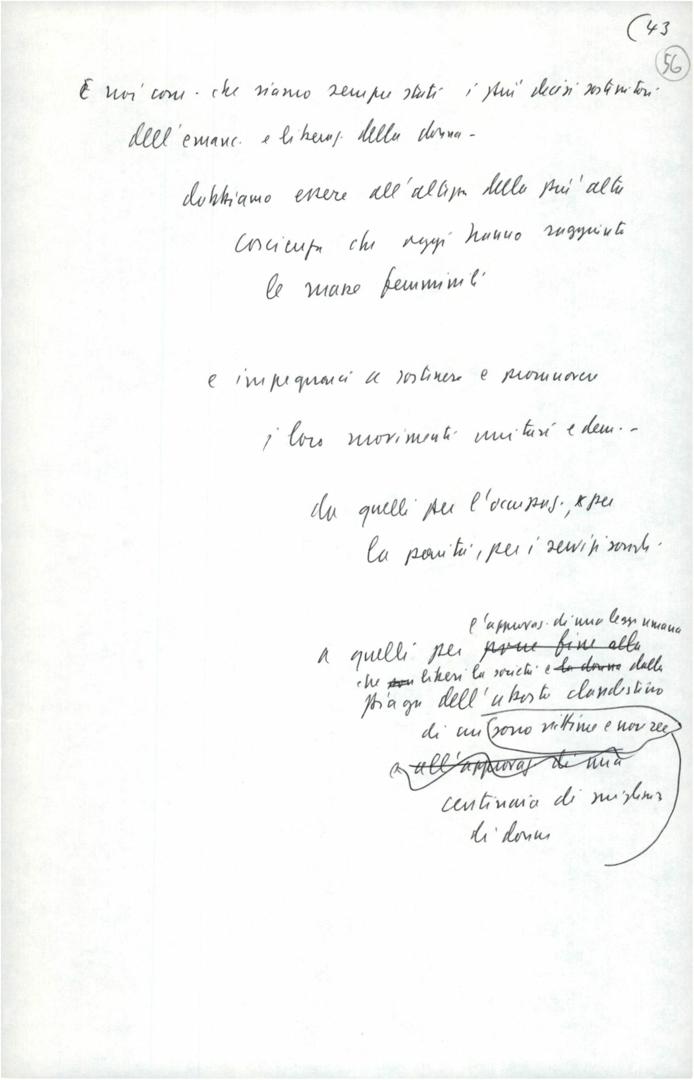 (43
56
E noi com. che siamo sempre stati i più decisi sostenitori
dell'emanc. e liberaz. della donna -
dobbiamo essere all'altezza della più alta
coscienza che oggi hanno raggiunto
le masse femminili
e impegnarci a sostenere e promuovere
i loro movimenti unitari e dem. -
da quelli per l'occupaz., per
la parità, per i servizi sociali.
l'approvaz. di una legge umana
a quelli per porre fine alla
che liberi la società e la donna dalla
piaga dell'aborto clandestino
di cui sono vittime
all'approvaz. di una
centinaia di migliaia
di donne